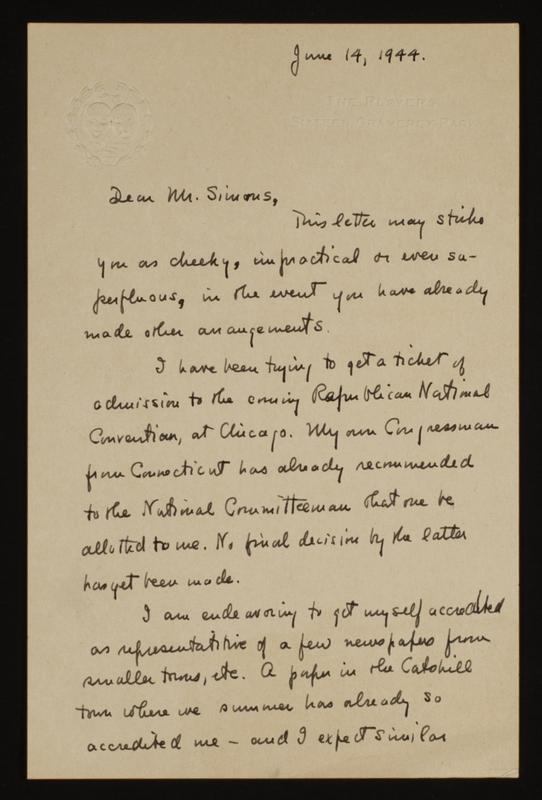 June 14, 1944.
THE PLAYERS
SIXTEEN GRAMERCY PARK
Dear Mr. Simons,
This letter may strike
you as cheeky, impractical or even su-
perfluous, in the event you have already
made other arrangements.
I have been trying to get a ticket of
admission to the coming Republican National
Convention, at Chicago. My own Congressman
from Connecticut has already recommended
to the National Committeeman that one be
allotted to me. No final decision by the latter
has yet been made.
I am endeavoring to get myself accredited
as representatitive of a few newspapers from
smaller towns, etc. A paper in the Catskill
town where we summer has already so
accredited me – and I expect similar